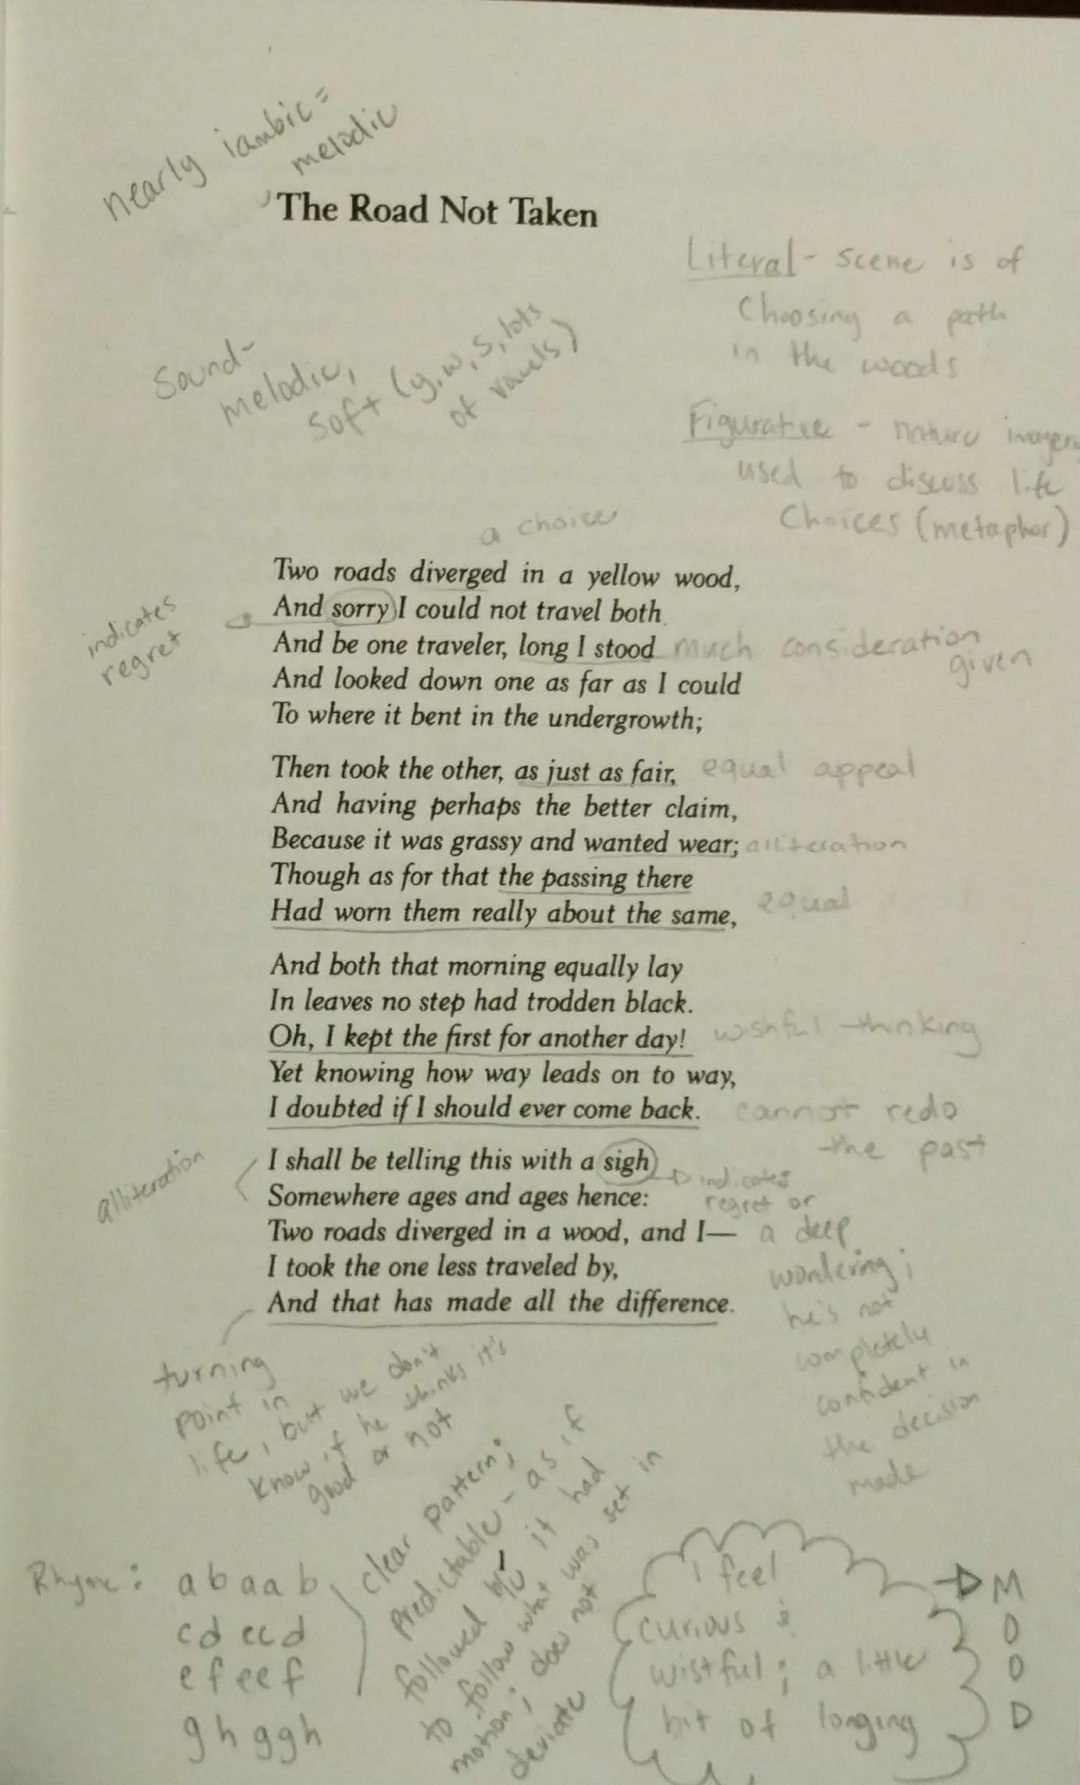 nearly iambic =
melodic
The Road Not Taken
Literal - scene is of
Choosing a path
in the woods
Sound-
melodic,
soft (y, w, s, lots
of vowels)
Figurative - nature imagery
used to discuss life
Choices (metaphor)
a choice
Two roads diverged in a yellow wood,
And sorry I could not travel both
And be one traveler, long I stood much consideration
given
And looked down one as far as I could
To where it bent in the undergrowth;
indicates
regret
Then took the other, as just as fair, equal appeal
And having perhaps the better claim,
Because it was grassy and wanted wear; alliteration
Though as for that the passing there
Had worn them really about the same, equal
And both that morning equally lay
In leaves no step had trodden black.
Oh, I kept the first for another day! wishful thinking
Yet knowing how way leads on to way,
I doubted if I should ever come back. cannot redo
the past
alliteration
I shall be telling this with a sigh
Somewhere ages and ages hence:
Two roads diverged in a wood, and I—
I took the one less traveled by,
And that has made all the difference.
indicates
regret or
a deep
wondering;
he's not
completely
confident in
the decision
made
turning
point in
life, but we don't
know if he thinks it's
good or not
Rhyme: abaab
cdccd
efeef
ghggh
clear pattern;
predictable - as if
followed it had
to follow what was set in
motion; does not
deviate
I feel
curious &
wistful; a little
bit of longing
M
O
O
D
1